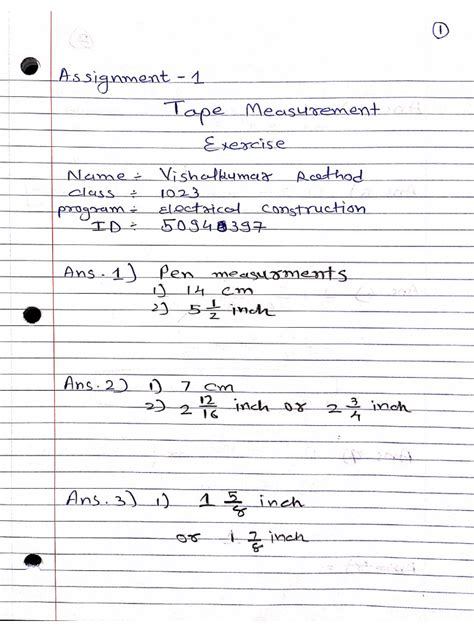 ①
Assignment - 1
Tape Measurement
Exercise
Name :- Vishalkumar Racthod
class :- 1023
program :- Electrical construction
ID :- 50948397
Ans. 1) Pen measurments
1) 14 cm
2) 5 1/2 inch
Ans. 2) 1) 7 cm
2) 2 12/16 inch or 2 3/4 inch
Ans. 3) 1) 1 5/8 inch
or 1 7/8 inch